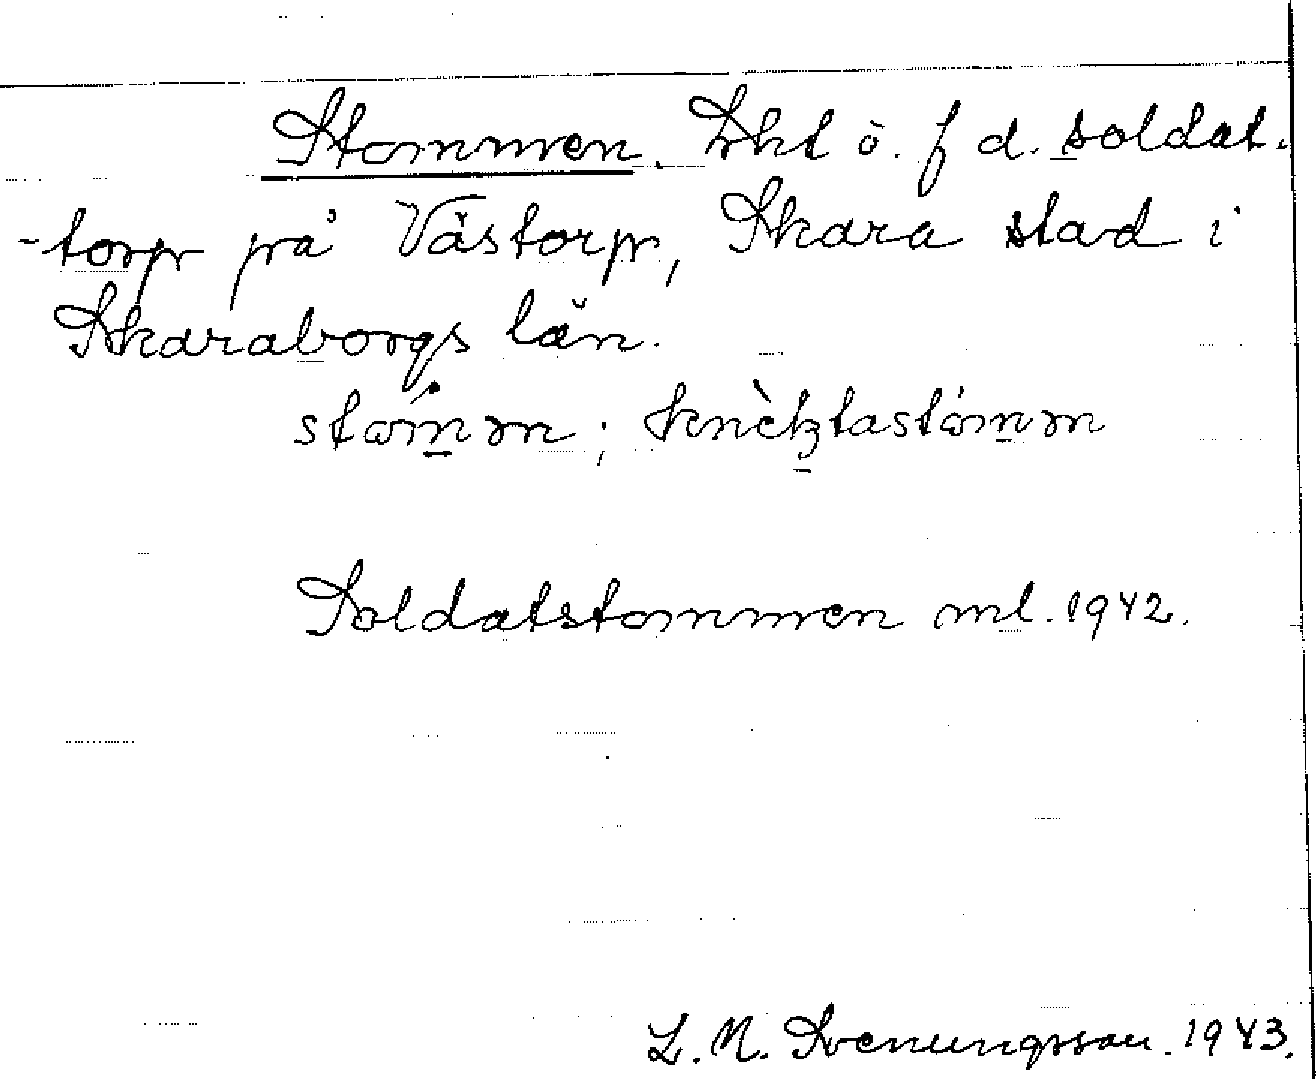 Stommen. Lht ö. f d. soldat-
-torp på Västorp, Skara stad i
Skaraborgs län.
stómm; knèktastómm
Soldatstommen ml. 1942.
L. N. Svenungsson. 1943.